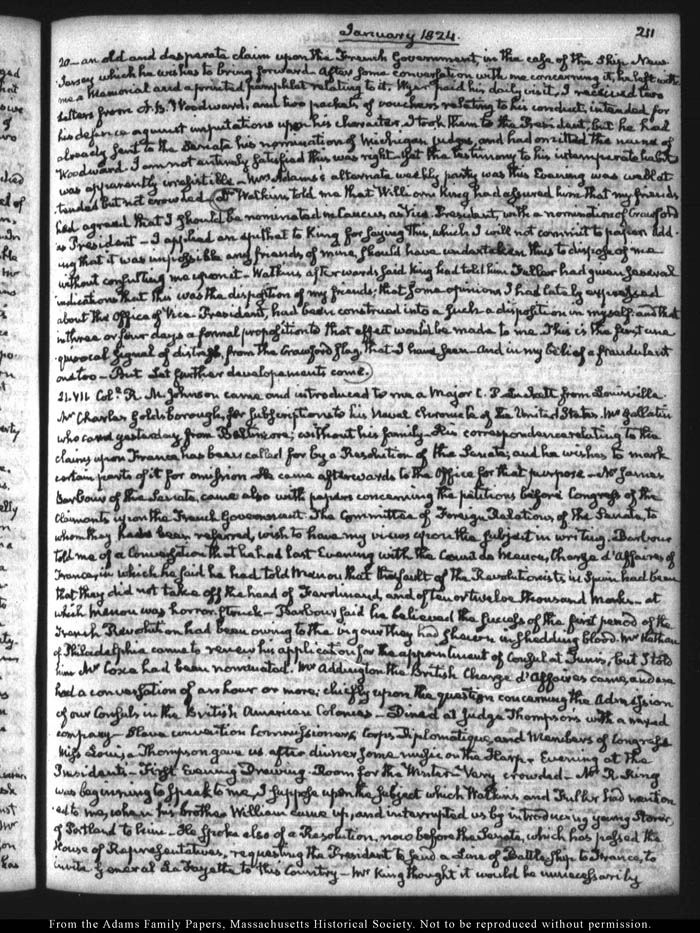 January 1824.
211
20— an old and desperate claim upon the French Government, in the case of the Ship New
Jersey which he wishes to bring forward. After some conversation with me concerning it, he left with
me a Memorial and a printed pamphlet relating to it. Wyer paid his daily visit, I received two
letters from A. B. Woodward, and two packets of vouchers relating to his conduct, intended for
his defence against imputations upon his character. I took them to the President, but he had
already sent to the Senate his nomination of Michigan judges, and had omitted the name of
Woodward. I am not entirely satisfied this was right. Yet the testimony to his intemperate habits
was apparently irresistible— Mrs Adams's alternate weekly party was this Evening was well at-
tended but not crowded. Dr Watkins told me that William King had assured him that my friends
had agreed that I should be nominated in Caucus, as Vice-President, with a nomination of Crawford
as President— I applied an epithet to King for saying this, which I will not commit to paper. add-
ing that it was impossible any friends of mine, should have undertaken thus to dispose of me
without consulting me upon it— Watkins afterwards said King had told him Fuller had given several
indications that this was the disposition of my friends; that some opinions I had lately expressed
about the Office of Vice President, had been construed into a such a disposition in myself: and that
in three or four days a formal proposition to that effect would be made to me. This is the first une-
quivocal signal of distress, from the Crawford flag, that I have seen— And in my belief a fraudulent
one too— But let further developements come.
21. VII. Col. R. M. Johnson came and introduced to me a Major C. P. from Louisville.
Mr Charles Goldsborough, for subscriptions to his Naval Chronicle of the United States. Mr Gallatin
who came yesterday from Baltimore; without his family— His correspondence relating to the
claims upon France has been called for by a Resolution of the Senate; and he wishes to mark
certain parts of it for omission— He came afterwards to the Office for that purpose— Mr James
Barbour of the Senate, came also with papers concerning the petitions before Congress of the
Claimants upon the French Government. The Committee of Foreign Relations of the Senate, to
whom they have been referred, wish to have my views upon the subject in writing. Barbour
told me of a Conversation that he had last Evening with the Count de Menou, Charge d'Affaires of
France, in which he said he had told Menou that the fault of the Revolutionists in Spain had been
that they did not take off the head of Ferdinand, and of ten or twelve thousand Monks— at
which Menou was horror-struck— Barbour said he believed the success of the first period of the
French Revolution had been owing to the vigour they had shewn in shedding blood. Mr Nathan
of Philadelphia came to renew his application for the appointment of Consul at Tunis, but I told
him Mr Coxe had been nominated. Mr Addington the British Charge d'Affaires came, and we
had a conversation of an hour or more; chiefly upon the question concerning the Admission
of our Consuls in the British American Colonies— Dined at Judge Thompson's with a mixed
company— Slave convention Commissioners, Corps Diplomatique, and Members of Congress
Miss Louisa Thompson gave us after dinner some music on the Harp— Evening at the
Presidents— First Evening Drawing-Room for the Winter— Very crowded— Mr R. King
was beginning to speak to me, I suppose upon the subject which Watkins and Fuller had mention-
ed to me, when his brother William came up, and interrupted us by introducing young Storer,
of Portland to him— He spoke also of a Resolution, now before the Senate, which has passed the
House of Representatives, requesting the President to send a Line of Battle Ship to France, to
invite General La Fayette to this Country— Mr King thought it would be unnecessarily
From the Adams Family Papers, Massachusetts Historical Society. Not to be reproduced without permission.